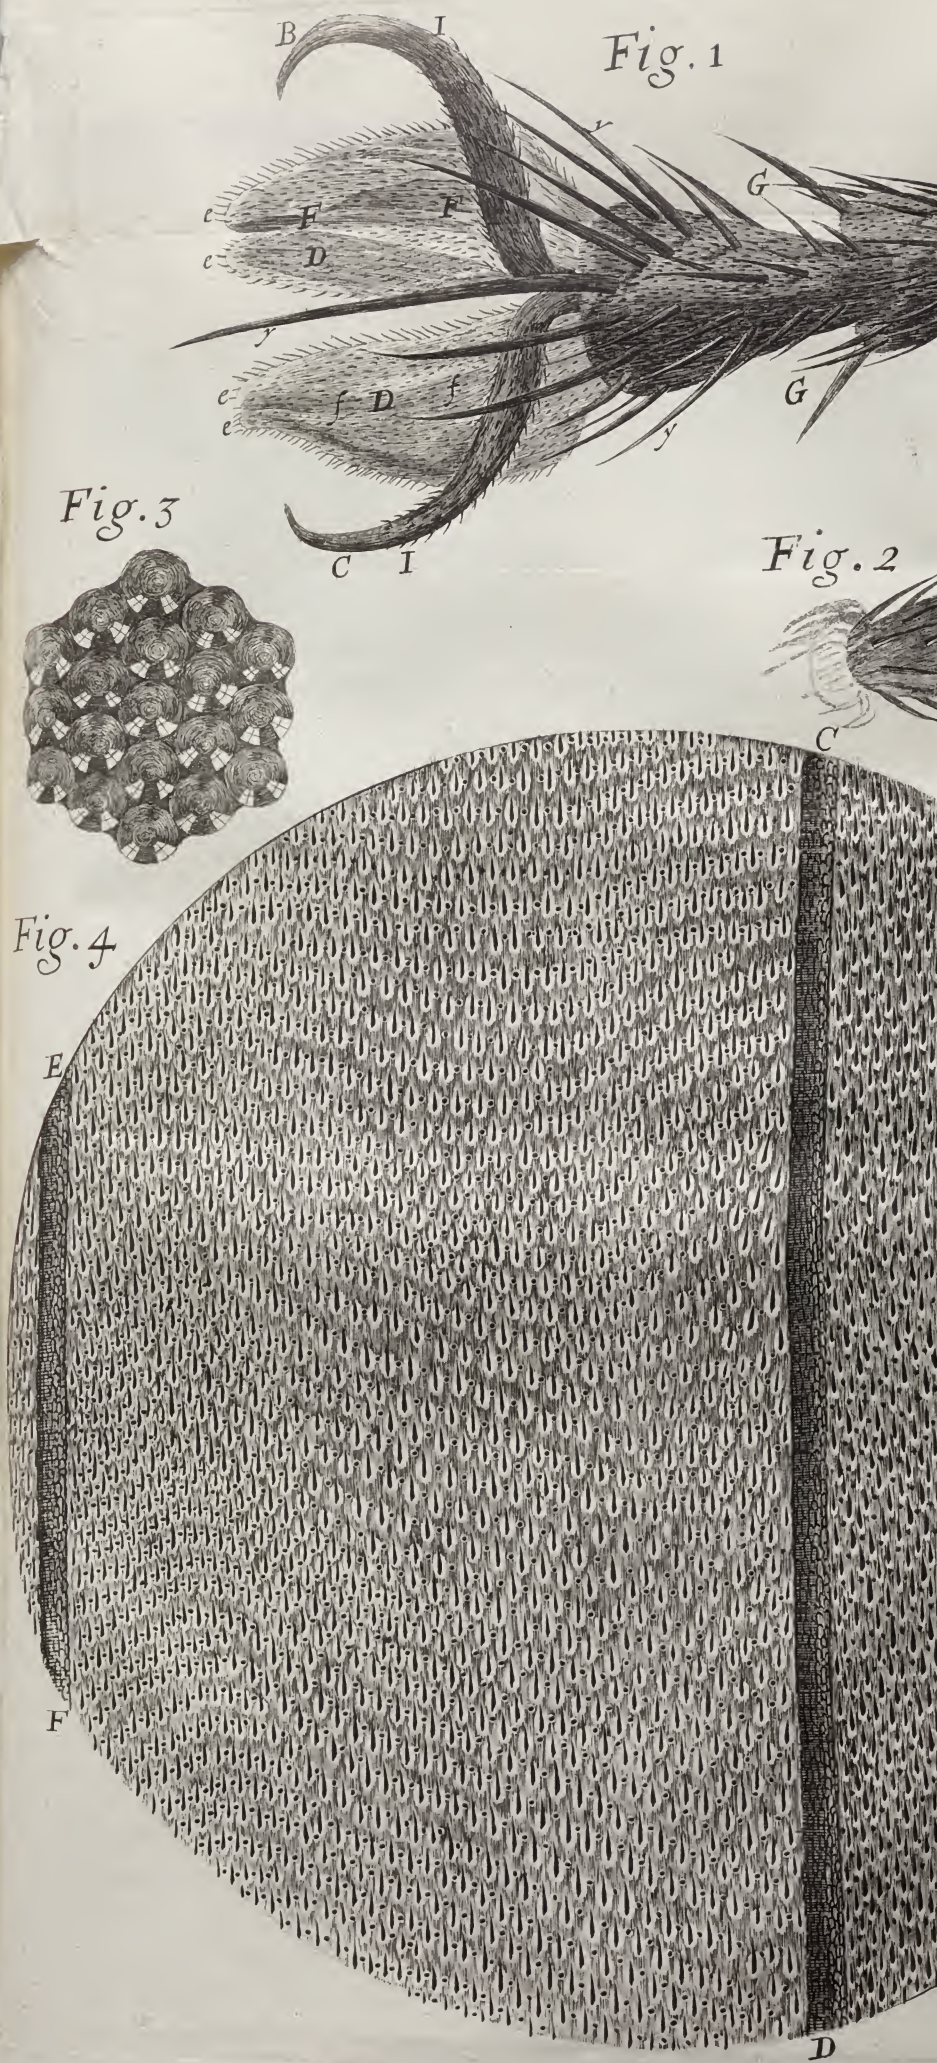 B
I
Fig. 1
y
G
e
F
F
e
D
y
e
f
D
f
e
G
y
C
I
Fig. 3
Fig. 2
C
Fig. 4
E
F
D